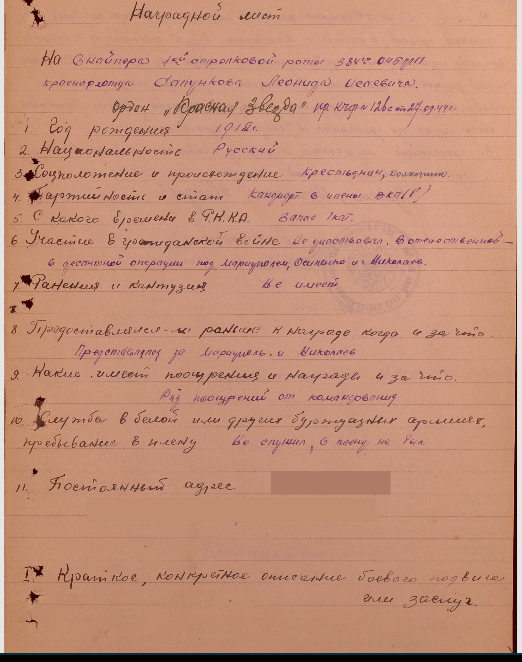 Наградной лист
На Снайпера 1ой стрелковой роты 384го ОНБМП
краснофлотца Сапункова Леонида Исаевича.
орден „Красная Звезда" пр. КЧФ № 12вс от 27.04.44г.
1. Год рождения 1918г.
2. Национальность Русский
3. Соцположение и происхождение крестьянин,
4. Партийность и стаж Кандидат в члены ВКП(б)
5. С какого времени в РККА. Запас 1 кат.
6. Участие в гражданской войне Не участвовал. В отечественной —
в десантной операции под Мариуполем, Осипенко и Николаев.
7. Ранения и контузия Не имеет
8. Предоставлялся-ли раньше к награде когда и за что.
Представлялся за Мариуполь и Николаев
9. Какие имеет поощрения и награды и за что.
Ряд поощрений от командования
10. Служба в белой или других буржуазных армиях,
пребывание в плену Не служил, в плену не был
11. Постоянный адрес
I. Краткое, конкретное описание боевого подвига
или заслуг.